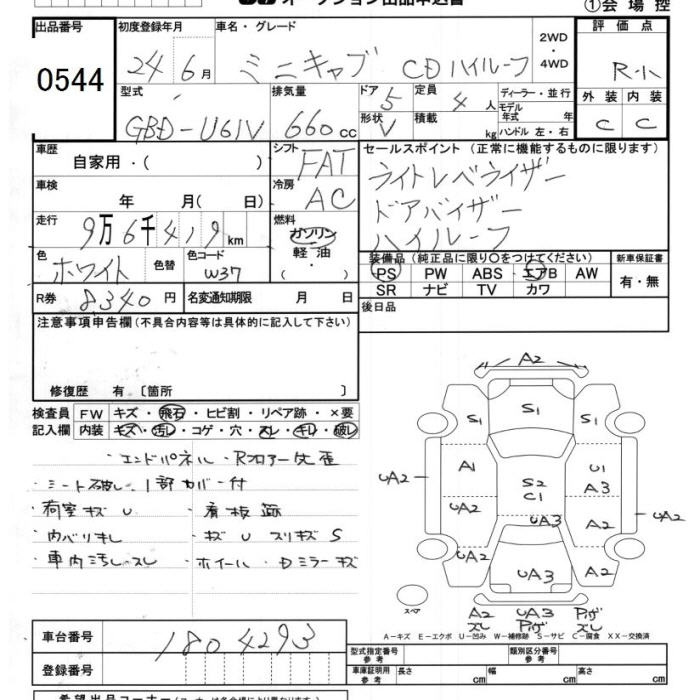 オークション出品申込書
①会場控
出品番号 初度登録年月 車名・グレード 2WD・4WD 評価点
0544 24 6月 ミニキャブ CDハイルーフ R-小
型式 排気量 ドア 5 定員 4人 ディーラー・並行 外装 内装
GBD-U61V 660cc 形状 V 積載 kg モデル年式 年 ハンドル 左・右 C C
車歴 シフト セールスポイント (正常に機能するものに限ります)
自家用・( ) FAT ライトレベライザー
車検 年 月( 日) 冷房 AC ドアバイザー
走行 9万6千419km 燃料 ガソリン ハイルーフ
色 色替 色コード 軽油 装備品 (純正品に限り○をつけてください) 新車保証書
ホワイト W37 ( ・ ) PS PW ABS エアB AW 有・無
R券 8,340円 名変通知期限 月 日 SR ナビ TV カワ
後日品
注意事項申告欄(不具合内容等は具体的に記入して下さい)
修復歴 有 〔箇所 〕
検査員 FW キズ・飛石・ヒビ割・リペア跡・×要
記入欄 内装 キズ・汚レ・コゲ・穴・スレ・キレ・破レ
・エンドパネル・Rフロアー 歪
・シート破レ 1部カバー付
・荷室キズ U ・看板跡
・内バリキレ ・キズ U スリキズ S
・車内汚レ・スレ ・ホイール・Dミラーキズ
A2
S1 S1 S1
UA2 A1 S2 C1 U1 A3
UA2 UA3 A2 UA2
UA2 UA3 A2
スペア A2 スレ UA3
A−キズ E−エクボ U−凹み W−補修跡 S−サビ C−腐食 XX−交換済
車台番号 1804293
登録番号
型式指定番号 参考 類別区分番号 参考
車庫証明用 参考 長さ cm 幅 cm 高さ cm
希望出品コーナー